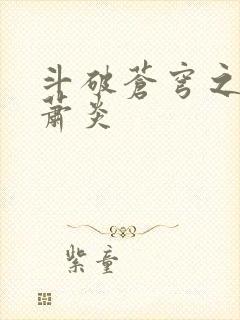 斗破苍穹之
萧炎
紫童